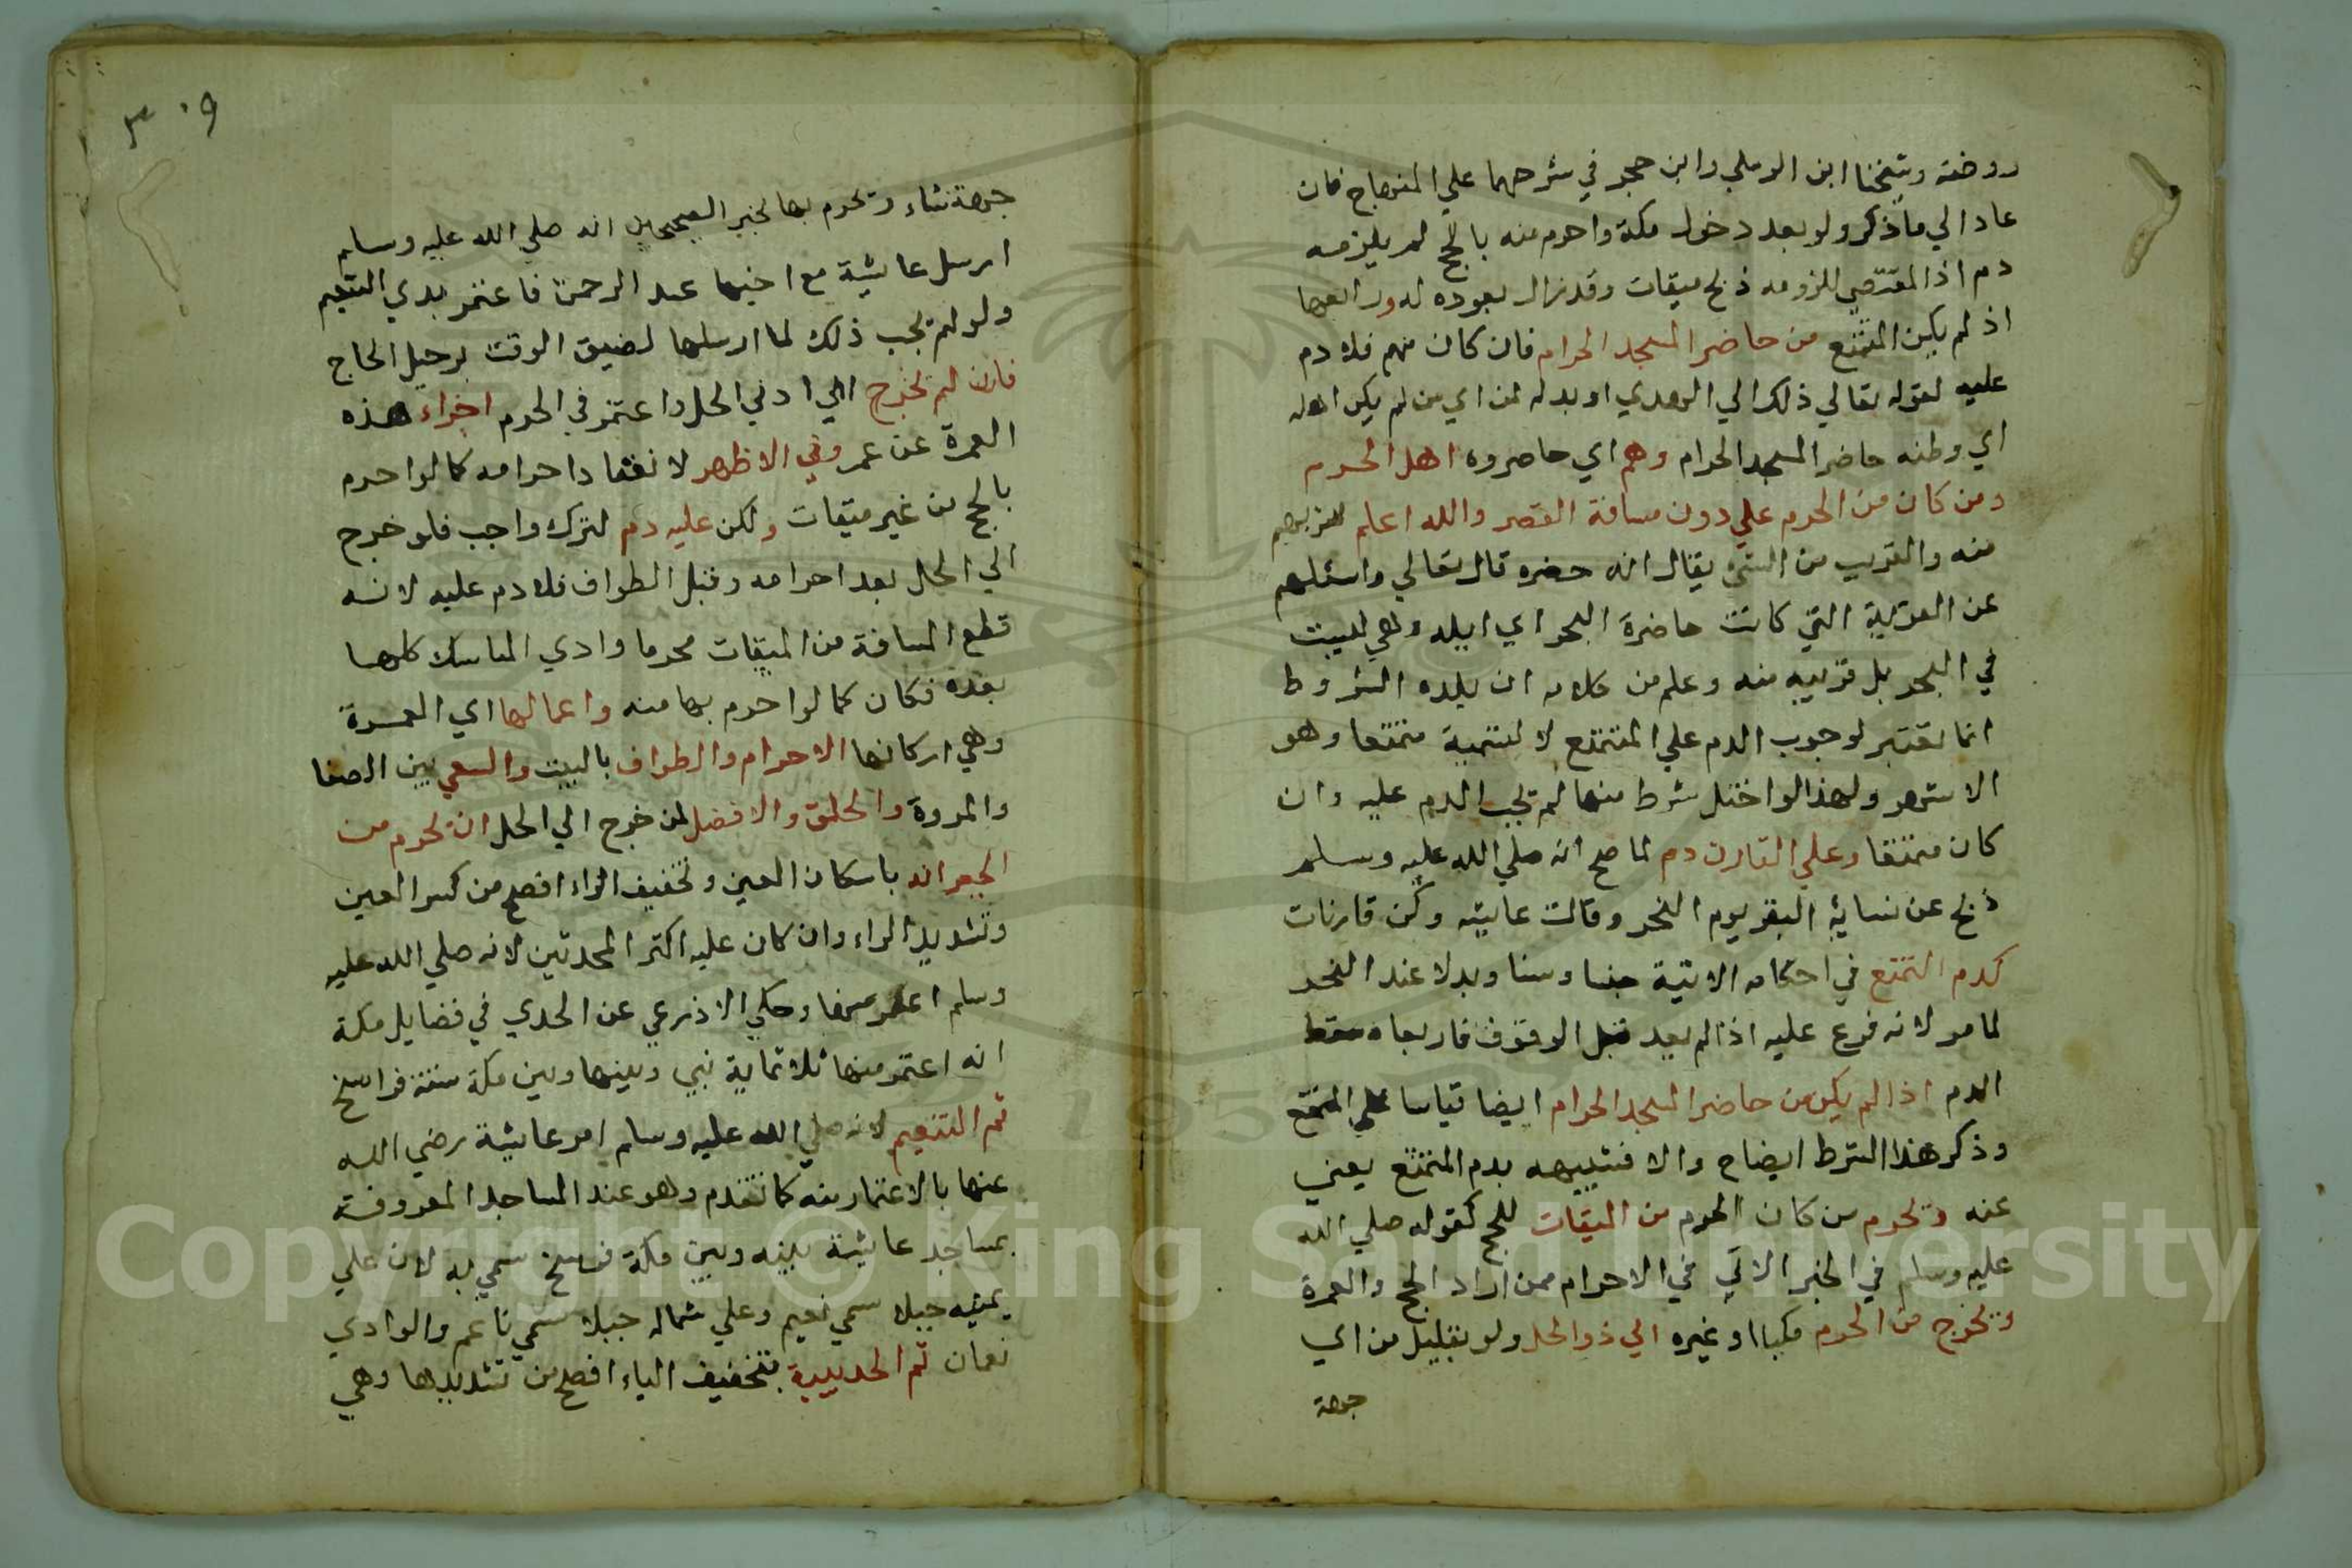 روضته وشيخنا ابن الرملي وابن حجر في شرحهما علي المنهاج فان
عاد الي ما ذكر ولو بعد دخول مكة واحرم منه بالحج لم يلزمه
دم اذ المقتضي للزومه ذبح ميقات وقد زال بعوده له ورابعها
اذ لم يكن المتمتع من حاضر المسجد الحرام فان كان منهم فلا دم
عليه لقوله تعالي ذلك الي الهدي او بدله لمن اي من لم يكن اهله
اي وطنه حاضر المسجد الحرام وهم اي حاضروه اهل الحرم
ومن كان من الحرم علي دون مسافة القصر والله اعلم لقربهم
منه والقريب من الشي يقال انه حضره قال تعالي واسئلهم
عن القرية التي كانت حاضرة البحر اي ايله وهي ليست
في البحر بل قريبه منه وعلم من كلامه ان بلده الشروط
انما تعتبر لوجوب الدم علي المتمتع لا لتسمية متمتعا وهو
الاشهر ولهذا لو اختل شرط منها لم يجب الدم عليه وان
كان متمتعا وعلي القارن دم لما صح انه صلي الله عليه وسلم
ذبح عن نسايه البقر يوم النحر وقالت عايشه وكن قارنات
كدم التمتع في احكامه الاتية جنسا وسنا وبدلا عند العجز
لما مر لانه فرع عليه اذا لم يعد قبل الوقوف فان عاد سقط
الدم اذا لم يكن من حاضر المسجد الحرام ايضا قياسا علي المتمتع
وذكر هذا الشرط ايضاح والا فتشبيهه بدم المتمتع يغني
عنه ويحرم من كان الحرم من الميقات للحج لقوله صلي الله
عليه وسلم في الخبر الاتي في الاحرام ممن اراد الحج والعمرة
ويخرج من الحرم مكيا او غيره الي ذو الحل ولو بقليل من اي
جهة
٣٠٩
جهة شاء ويحرم بها لخبر الصحيحين انه صلي الله عليه وسلم
ارسل عايشة مع اخيها عبد الرحمن فاعتمر بدي التنعيم
ولو لم يجب ذلك لما ارسلها لضيق الوقت برحيل الحاج
فان لم يخرج الي ادني الحل واعتمر في الحرم اجزاء هذه
العمرة عن عمروفي الاظهر لانعقاد احرامه كما لو احرم
بالحج من غير ميقات ولكن عليه دم لترك واجب فلو خرج
الي الحل بعد احرامه وقبل الطواف فلا دم عليه لانه
قطع المسافة من الميقات محرما وادي المناسك كلها
بعده فكان كما لو احرم بها منه واعمالها اي العمرة
وهي اركانها الاحرام والطواف بالبيت والسعي بين الصفا
والمروة والحلق والافضل لمن خرج الي الحل ان يحرم من
الجعرانه باسكان العين وتخفيف الراء افصح من كسر العين
وتشديد الراء وان كان عليه اكثر المحدثين لانه صلي الله عليه
وسلم اعتمر منها وحكي الاذرعي عن الجدي في فضايل مكة
انه اعتمر منها ثلاثماية نبي وبينها وبين مكة ستة فراسخ
ثم التنعيم لانه صلي الله عليه وسلم امر عايشة رضي الله
عنها بالاعتمار منه كما تقدم وهو عند المساجد المعروفة
بمساجد عايشة بينه وبين مكة فرسخ سمي به لان علي
يمينه جبلا سمي نعيم وعلي شماله جبلا سمي ناعم والوادي
نعمان ثم الحديبية بتخفيف الياء افصح من تشديدها وهي
Copyright © King Saud University
195